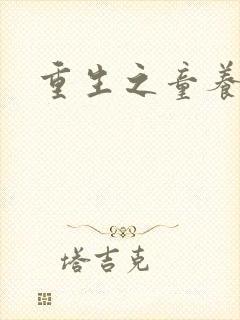 重生之童养
塔吉克